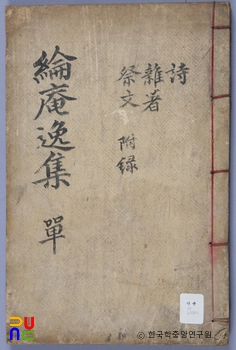 綸庵逸集 單
詩
雜著
祭文 附錄
ⓒ 한국학중앙연구원